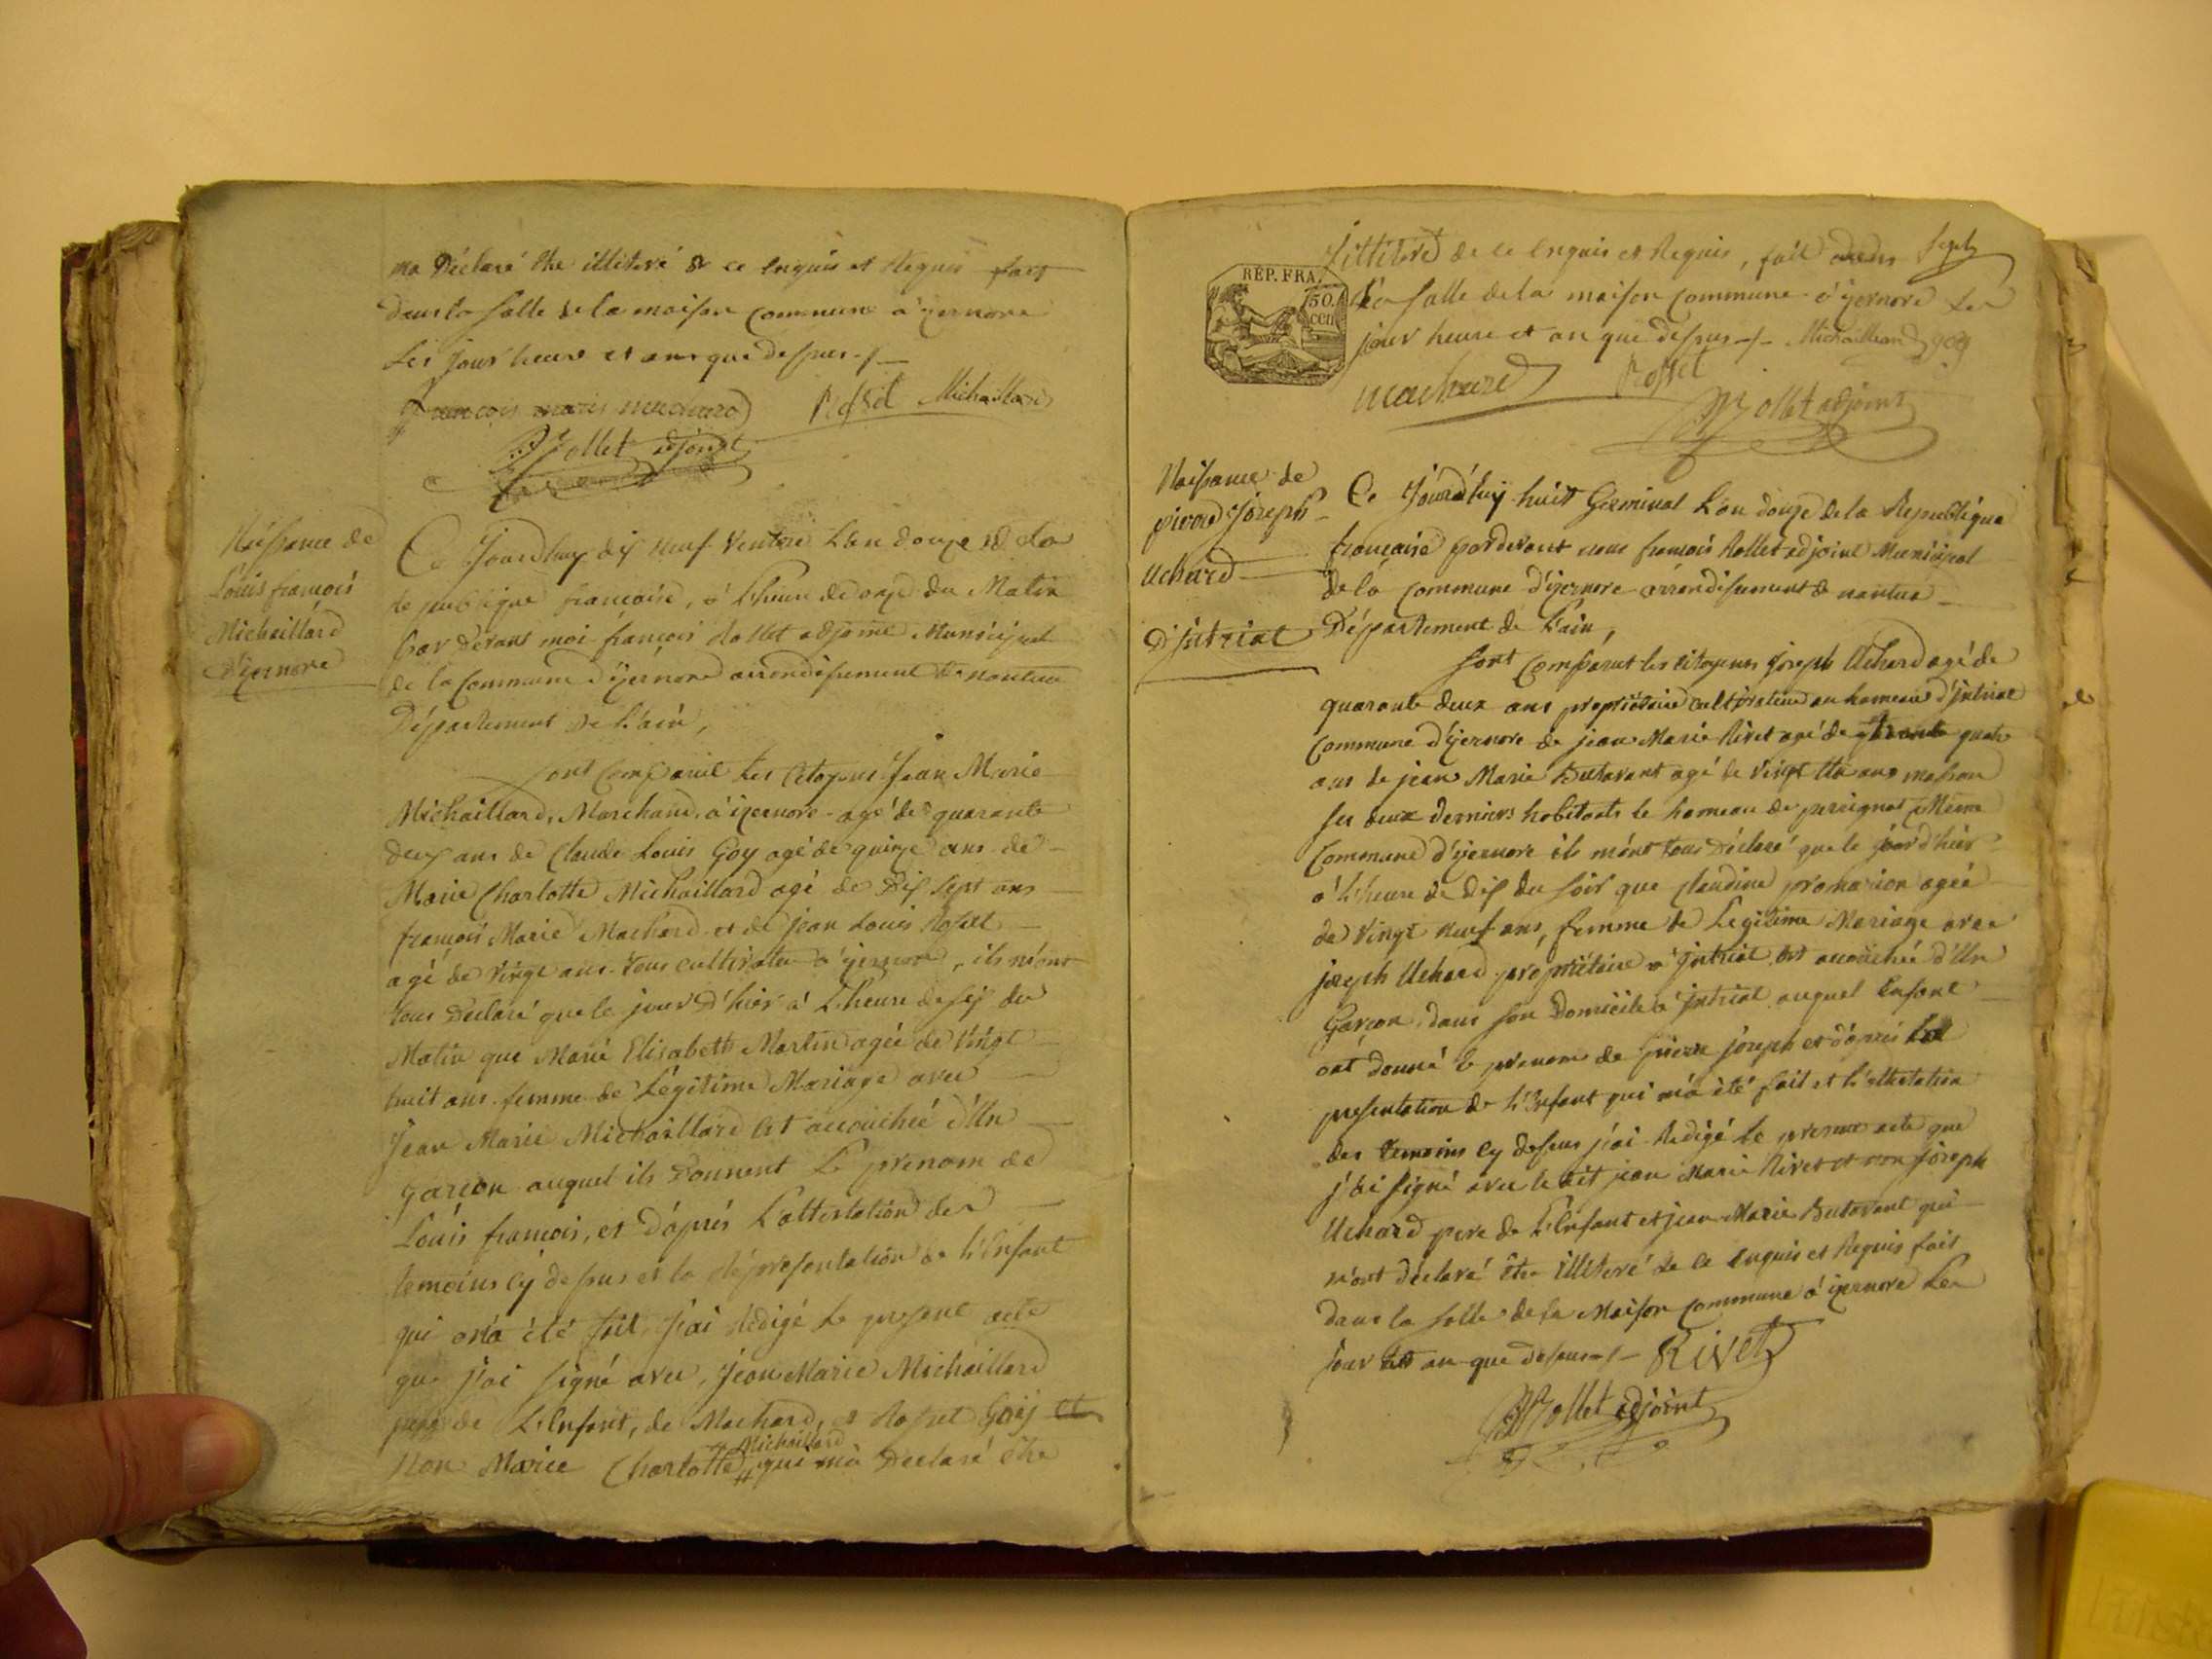 ma Déclaré être illiteré de ce enquis et Requis fait
dans la salle de la maison commune a izernore
Les jour heure et an que dessus -/-
François marie machard Rosset Michaillard
Rollet adjoint
Naissance de
Louis françois
Michaillard
D'izernore
Ce Jourdhuy dix neuf Ventose L'an douze de La
Republique française, à L'heure de onze du Matin
Par devant moi françois Rollet adjoint Municipal
de la Commune D'izernore arrondissement de nantua
Département De L'ain,
sont Comparut Les Citoyens Jean Marie
Michaillard, Marchand à izernore agé de quarante
deux ans de Claude Louis Goy agé de quinze ans de
Marie Charlotte Michaillard agé de Dix sept ans
françois Marie Machard et de jean Louis Rosset
agé de Vingt ans tous cultivateur à izernore, ils m'ont
tous Declaré que le jour D'hier à L'heure de six du
Matin que Marie Elisabeth Martin agée de Vingt
huit ans femme de Légitime Mariage avec
Jean Marie Michaillard Est accouchée d'Un
garçon auquel ils Donnent Le prenom de
Louis françois, et D'après L'attestation des
temoins cy dessus et la représentation de L'Enfant
qui m'a été fait, j'ai Rédigé Le présent acte
que j'ai signé avec, Jean Marie Michaillard
pere de L'Enfant, de Machard, et Rosset Goy et
Non Marie Charlotte Michaillard qui m'a Declaré être
Sept
illiteré de ce Enquis et Requis, fait dans
RÉP. FRA.
50.
cen
La salle de la maison commune d'izernore Les
jour heure et an que dessus -/- Michaillard goy
machard Rosset
Rollet adjoint
Naissance de
pierre Joseph
Uchard
D'jntriat
Ce Jourd'huy huit Germinal L'an douze de la Republique
française pardevant nous françois Rollet adjoint Municipal
de la Commune d'izernore arrondissement de nantua
Département de L'ain,
sont Comparut les citoyens joseph Uchard agé de
quarante deux ans propriétaire cultivateur au hameau d'jntriat
Commune d'izernore de jean Marie Rivet agé de trente quatre
ans de jean Marie Butavant agé de Vingt
ses deux derniers habitants le hameau de perignat Même
Commune d'izernore ils m'ont tous Déclaré que le jour d'hier
à L'heure de dix du soir que Claudine agée
de Vingt neuf ans, femme de Légitime Mariage avec
joseph Uchard propriétaire à jntriat Est accouchée d'Un
Garçon, dans son Domicile à jntriat auquel Enfant
ont donné le prenom de pierre joseph et d'après La
présentation de L'Enfant qui m'a été fait et L'attestation
des temoins cy dessus j'ai Rédigé le présent acte que
j'ai signé avec le dit jean Marie Rivet et non joseph
Uchard pere de L'Enfant et jean Marie Butavant qui
m'ont déclaré être illiteré de ce Enquis et Requis fait
dans la salle de la Maison Commune à izernore Les
jour et an que dessus -/- Rivet
Rollet adjoint